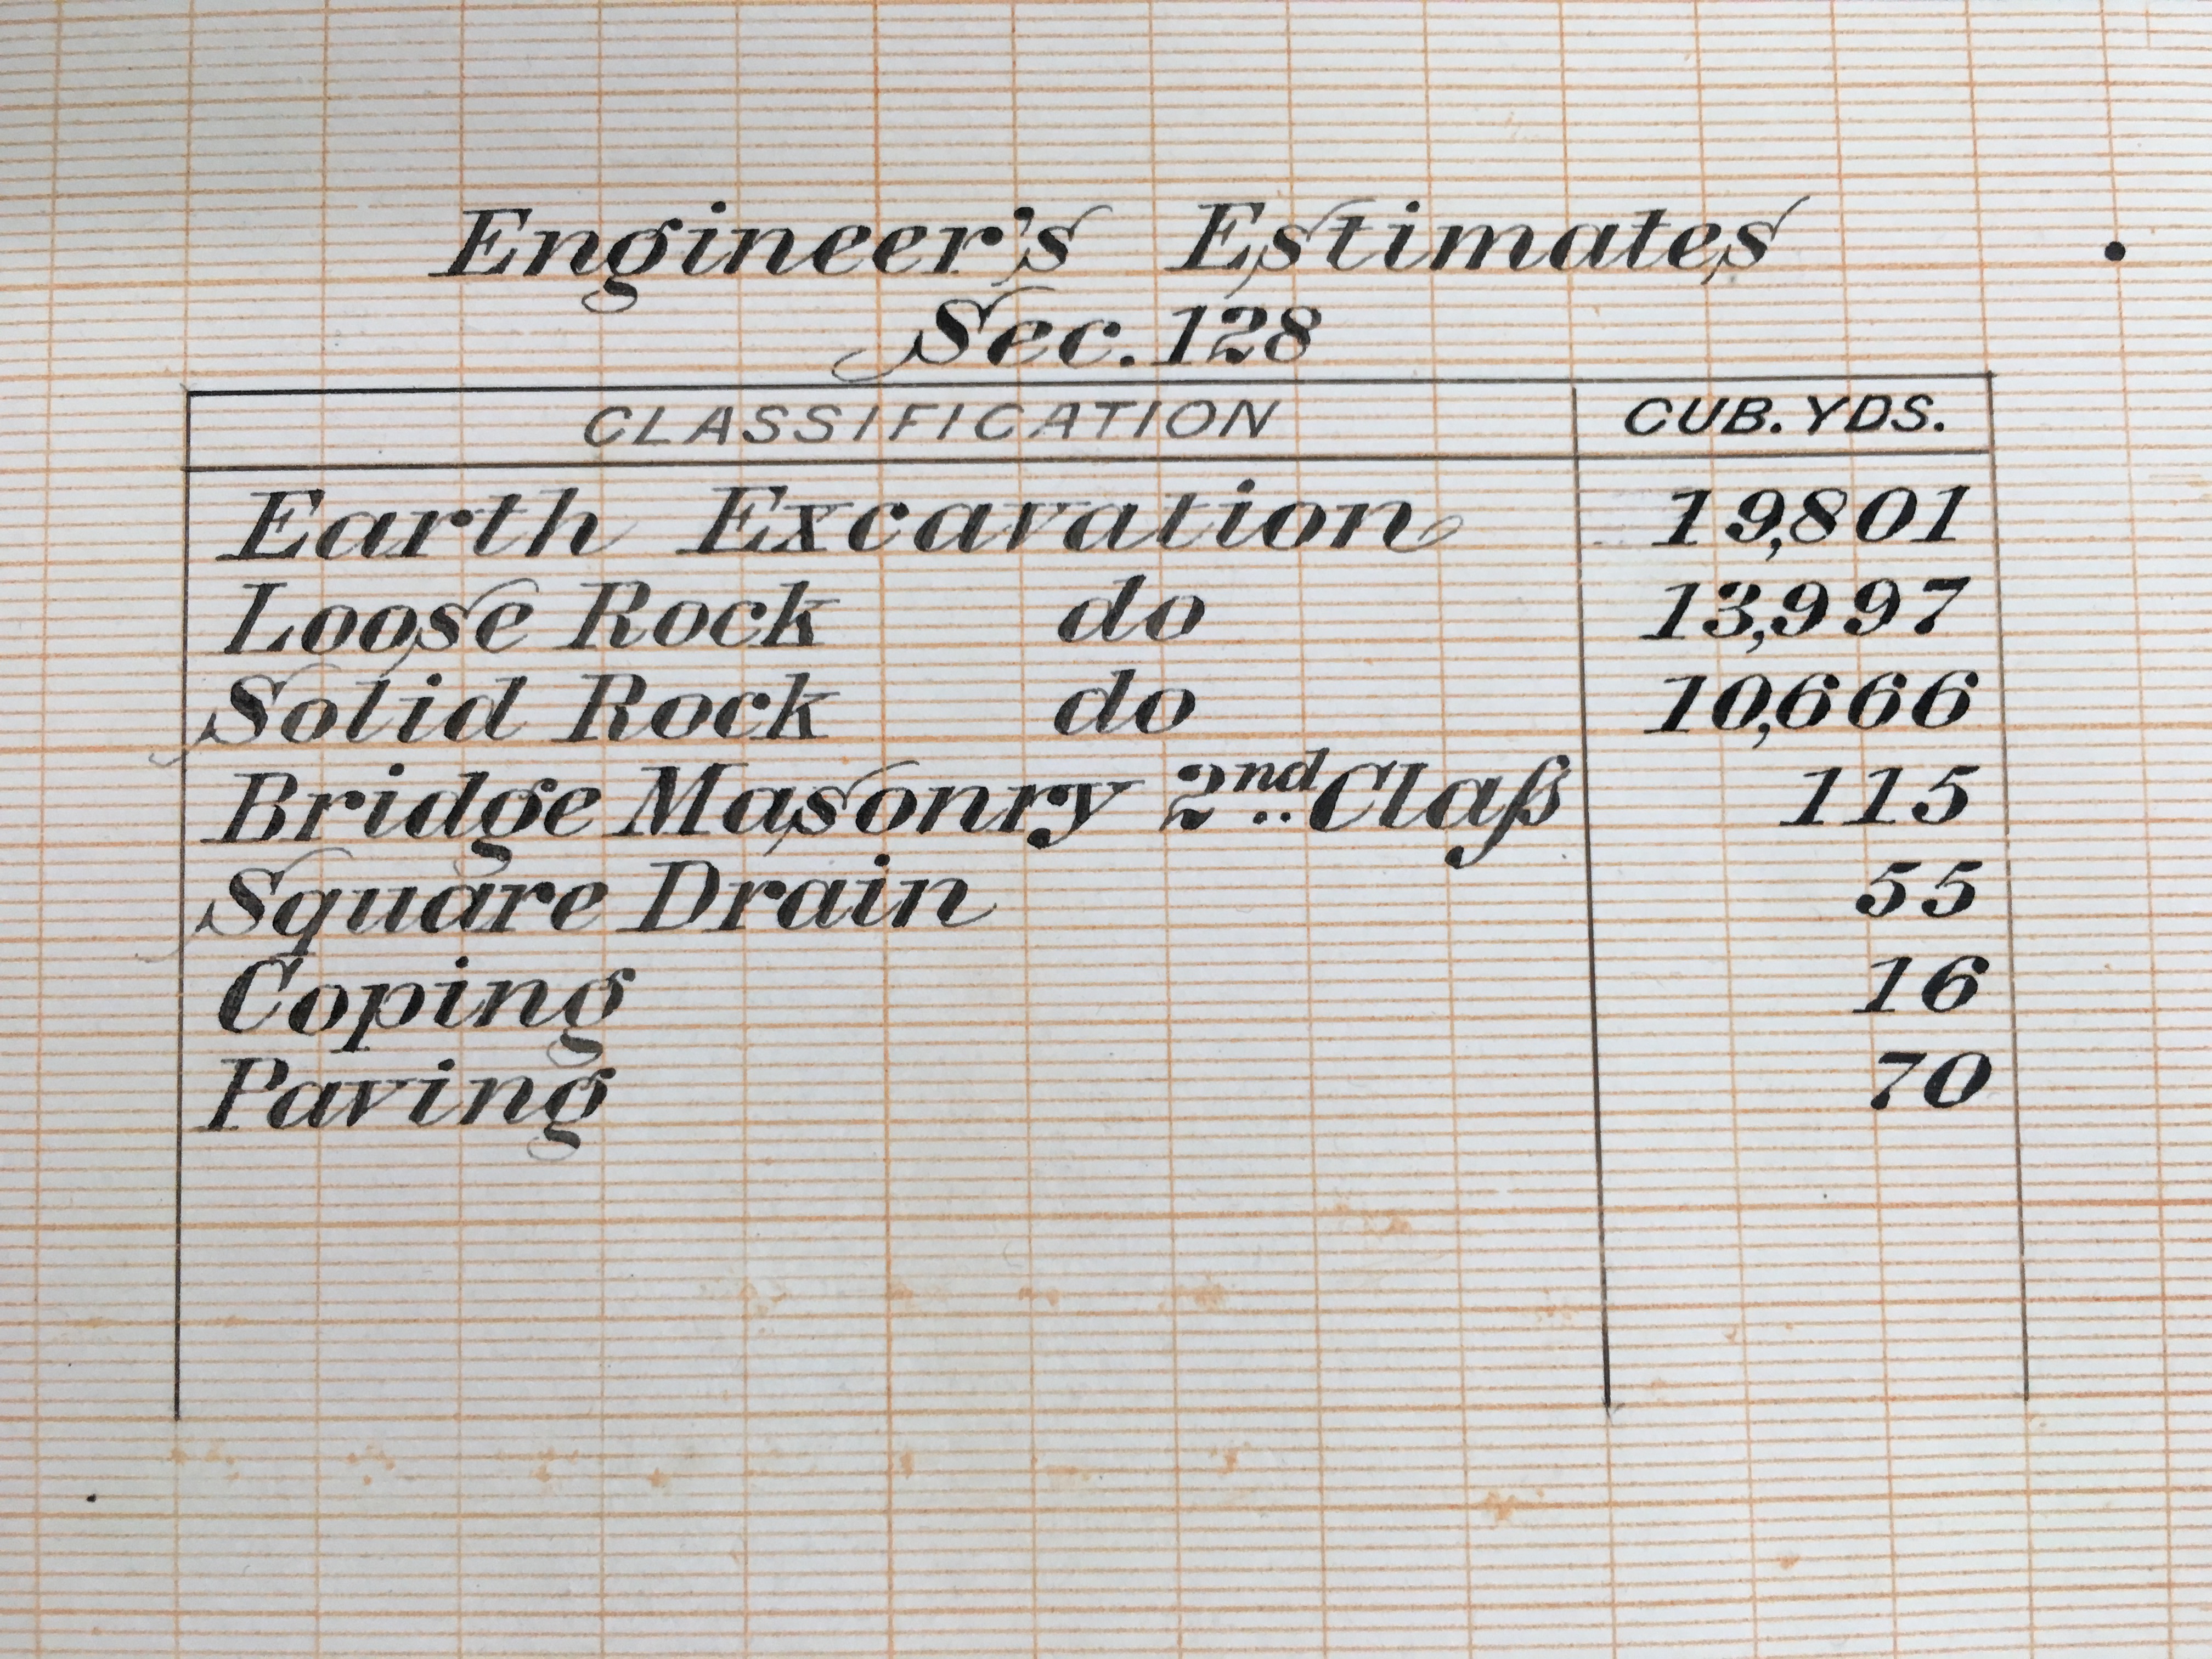 Engineer's Estimates
Sec. 128
CLASSIFICATION CUB. YDS.
Earth Excavation 19,801
Loose Rock do 13,997
Solid Rock do 10,666
Bridge Masonry 2nd Claß 115
Square Drain 55
Coping 16
Paving 70